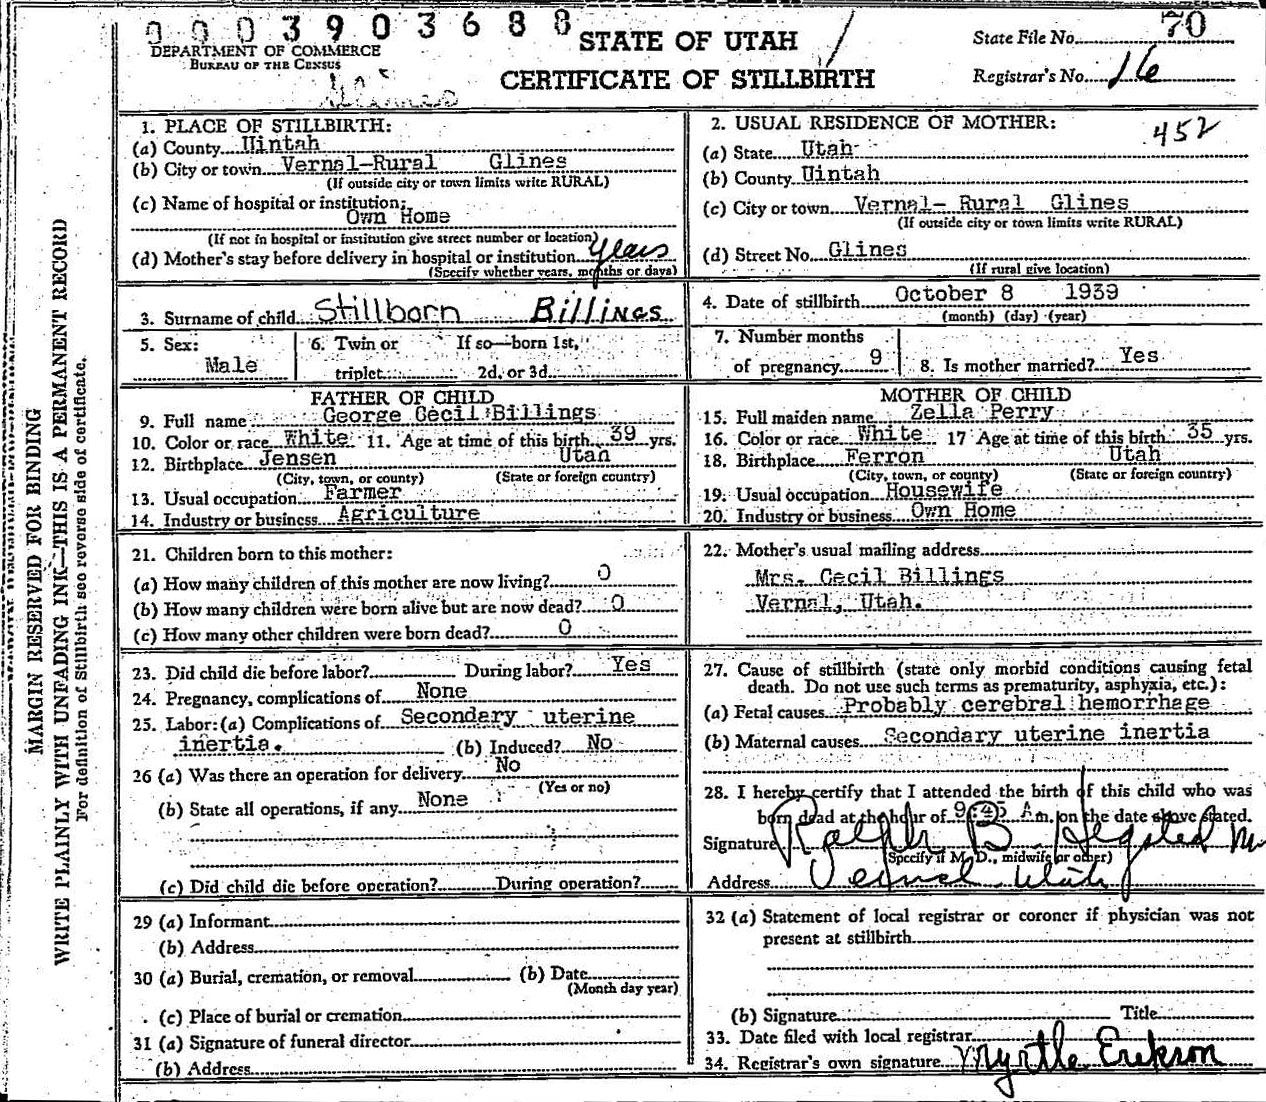 0003903688
DEPARTMENT OF COMMERCE
BUREAU OF THE CENSUS
STATE OF UTAH
CERTIFICATE OF STILLBIRTH
State File No. 70
Registrar's No. 16
1. PLACE OF STILLBIRTH:
(a) County Uintah
(b) City or town Vernal-Rural Glines
(If outside city or town limits write RURAL)
(c) Name of hospital or institution:
Own Home
(If not in hospital or institution give street number or location)
(d) Mother's stay before delivery in hospital or institution years
(Specify whether years, months or days)
2. USUAL RESIDENCE OF MOTHER:
452
(a) State Utah
(b) County Uintah
(c) City or town Vernal- Rural Glines
(If outside city or town limits write RURAL)
(d) Street No. Glines
(If rural give location)
3. Surname of child Stillborn Billings
4. Date of stillbirth October 8 1939
(month) (day) (year)
5. Sex:
Male
6. Twin or If so—born 1st,
triplet 2d, or 3d
7. Number months
of pregnancy 9
8. Is mother married? Yes
FATHER OF CHILD
9. Full name George Cecil Billings
10. Color or race White 11. Age at time of this birth 39 yrs.
12. Birthplace Jensen Utah
(City, town, or county) (State or foreign country)
13. Usual occupation Farmer
14. Industry or business Agriculture
MOTHER OF CHILD
15. Full maiden name Zella Perry
16. Color or race White 17 Age at time of this birth 35 yrs.
18. Birthplace Ferron Utah
(City, town, or county) (State or foreign country)
19. Usual occupation Housewife
20. Industry or business Own Home
21. Children born to this mother:
(a) How many children of this mother are now living? 0
(b) How many children were born alive but are now dead? 0
(c) How many other children were born dead? 0
22. Mother's usual mailing address
Mrs. Cecil Billings
Vernal, Utah.
23. Did child die before labor? During labor? Yes
24. Pregnancy, complications of None
25. Labor: (a) Complications of Secondary uterine
inertia. (b) Induced? No
26 (a) Was there an operation for delivery No
(Yes or no)
(b) State all operations, if any None
(c) Did child die before operation? During operation?
27. Cause of stillbirth (state only morbid conditions causing fetal
death. Do not use such terms as prematurity, asphyxia, etc.):
(a) Fetal causes Probably cerebral hemorrhage
(b) Maternal causes Secondary uterine inertia
28. I hereby certify that I attended the birth of this child who was
born dead at the hour of 9:45 A m. on the date above stated.
Signature Ralph B. Hegsted M
(Specify if M. D., midwife or other)
Address Vernal Utah
29 (a) Informant
(b) Address
30 (a) Burial, cremation, or removal (b) Date
(Month day year)
(c) Place of burial or cremation
31 (a) Signature of funeral director
(b) Address
32 (a) Statement of local registrar or coroner if physician was not
present at stillbirth
(b) Signature Title
33. Date filed with local registrar
34. Registrar's own signature Myrtle Erekson
MARGIN RESERVED FOR BINDING
WRITE PLAINLY WITH UNFADING INK—THIS IS A PERMANENT RECORD
For definition of Stillbirth see reverse side of certificate.